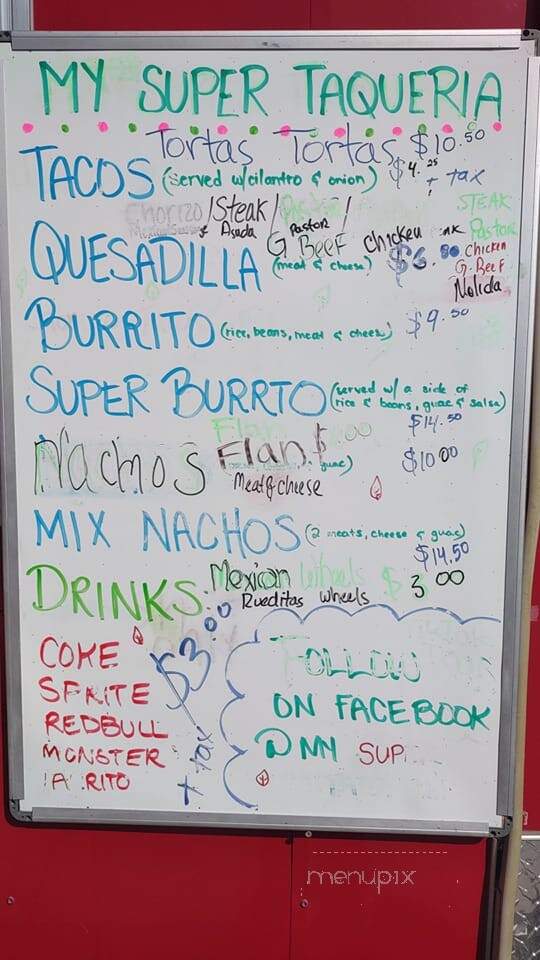 MY SUPER TAQUERIA
Tortas Tortas $10.50
TACOS (served w/cilantro & onion) $4.25 + tax
Chorizo / Steak / Pastor /
STEAK
Asada Pastor
G BEEF Chicken
Pastor
QUESADILLA (meat & cheese) $6.
Chicken
G. BEEF
Nolida
BURRITO (rice, beans, meat & cheese) $9.50
SUPER BURRTO (served w/ a side of
rice & beans, guac & salsa)
$14.50
Nachos Flan $ .00 guac) $10.00
Meat & cheese
MIX NACHOS (2 meats, cheese & guac)
$14.50
DRINKS: Mexican Wheels $3.00
Rueditas wheels
COKE
SPRITE
REDBULL
MONSTER
$3.00 + tax
FOLLOW
ON FACEBOOK
@ MY SUP
menupix